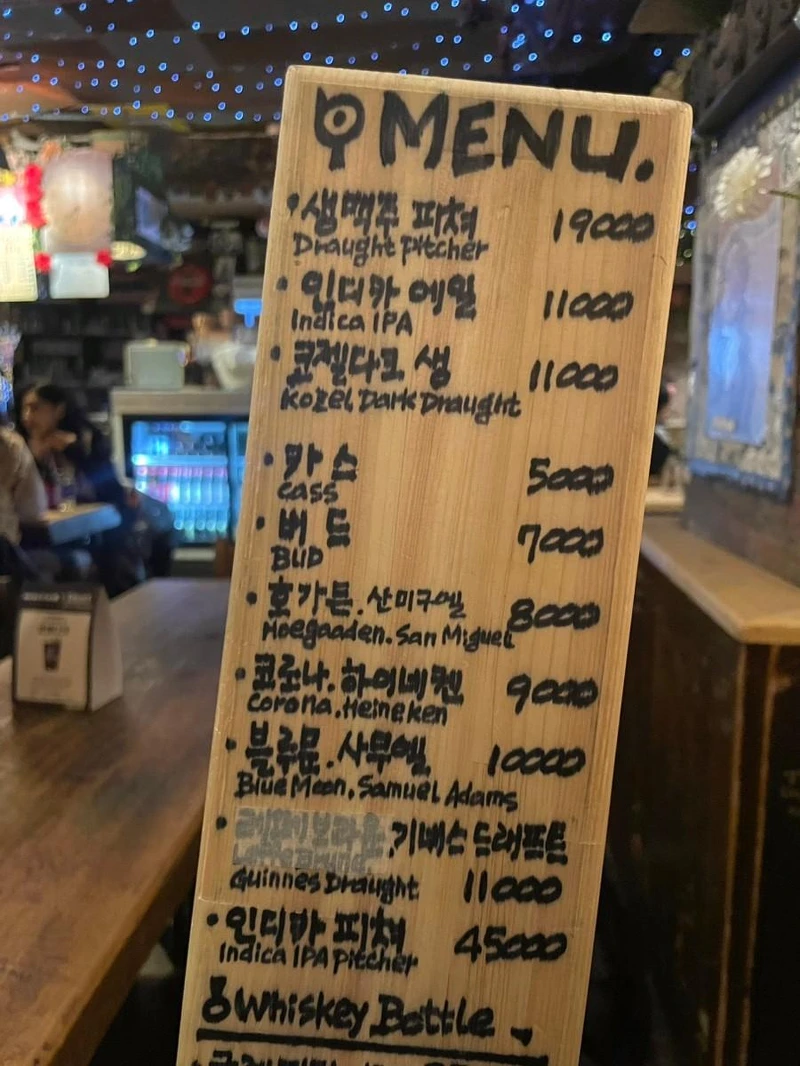 MENU.
• 생맥주 피쳐 19000
Draught Pitcher
• 인디카 에일 11000
Indica IPA
• 코젤다크 생 11000
Kozel Dark Draught
• 카스 5000
Cass
• 버드 7000
BUD
• 호가든. 산미구엘 8000
Hoegaaden. San Miguel
• 코로나. 하이네켄 9000
Corona. Heineken
• 블루문. 사무엘 10000
Blue Moon. Samuel Adams
• 레페브라운. 기버스 드래프트
Guinnes Draught 11000
• 인디카 피쳐 45000
Indica IPA Pitcher
Whiskey Bottle